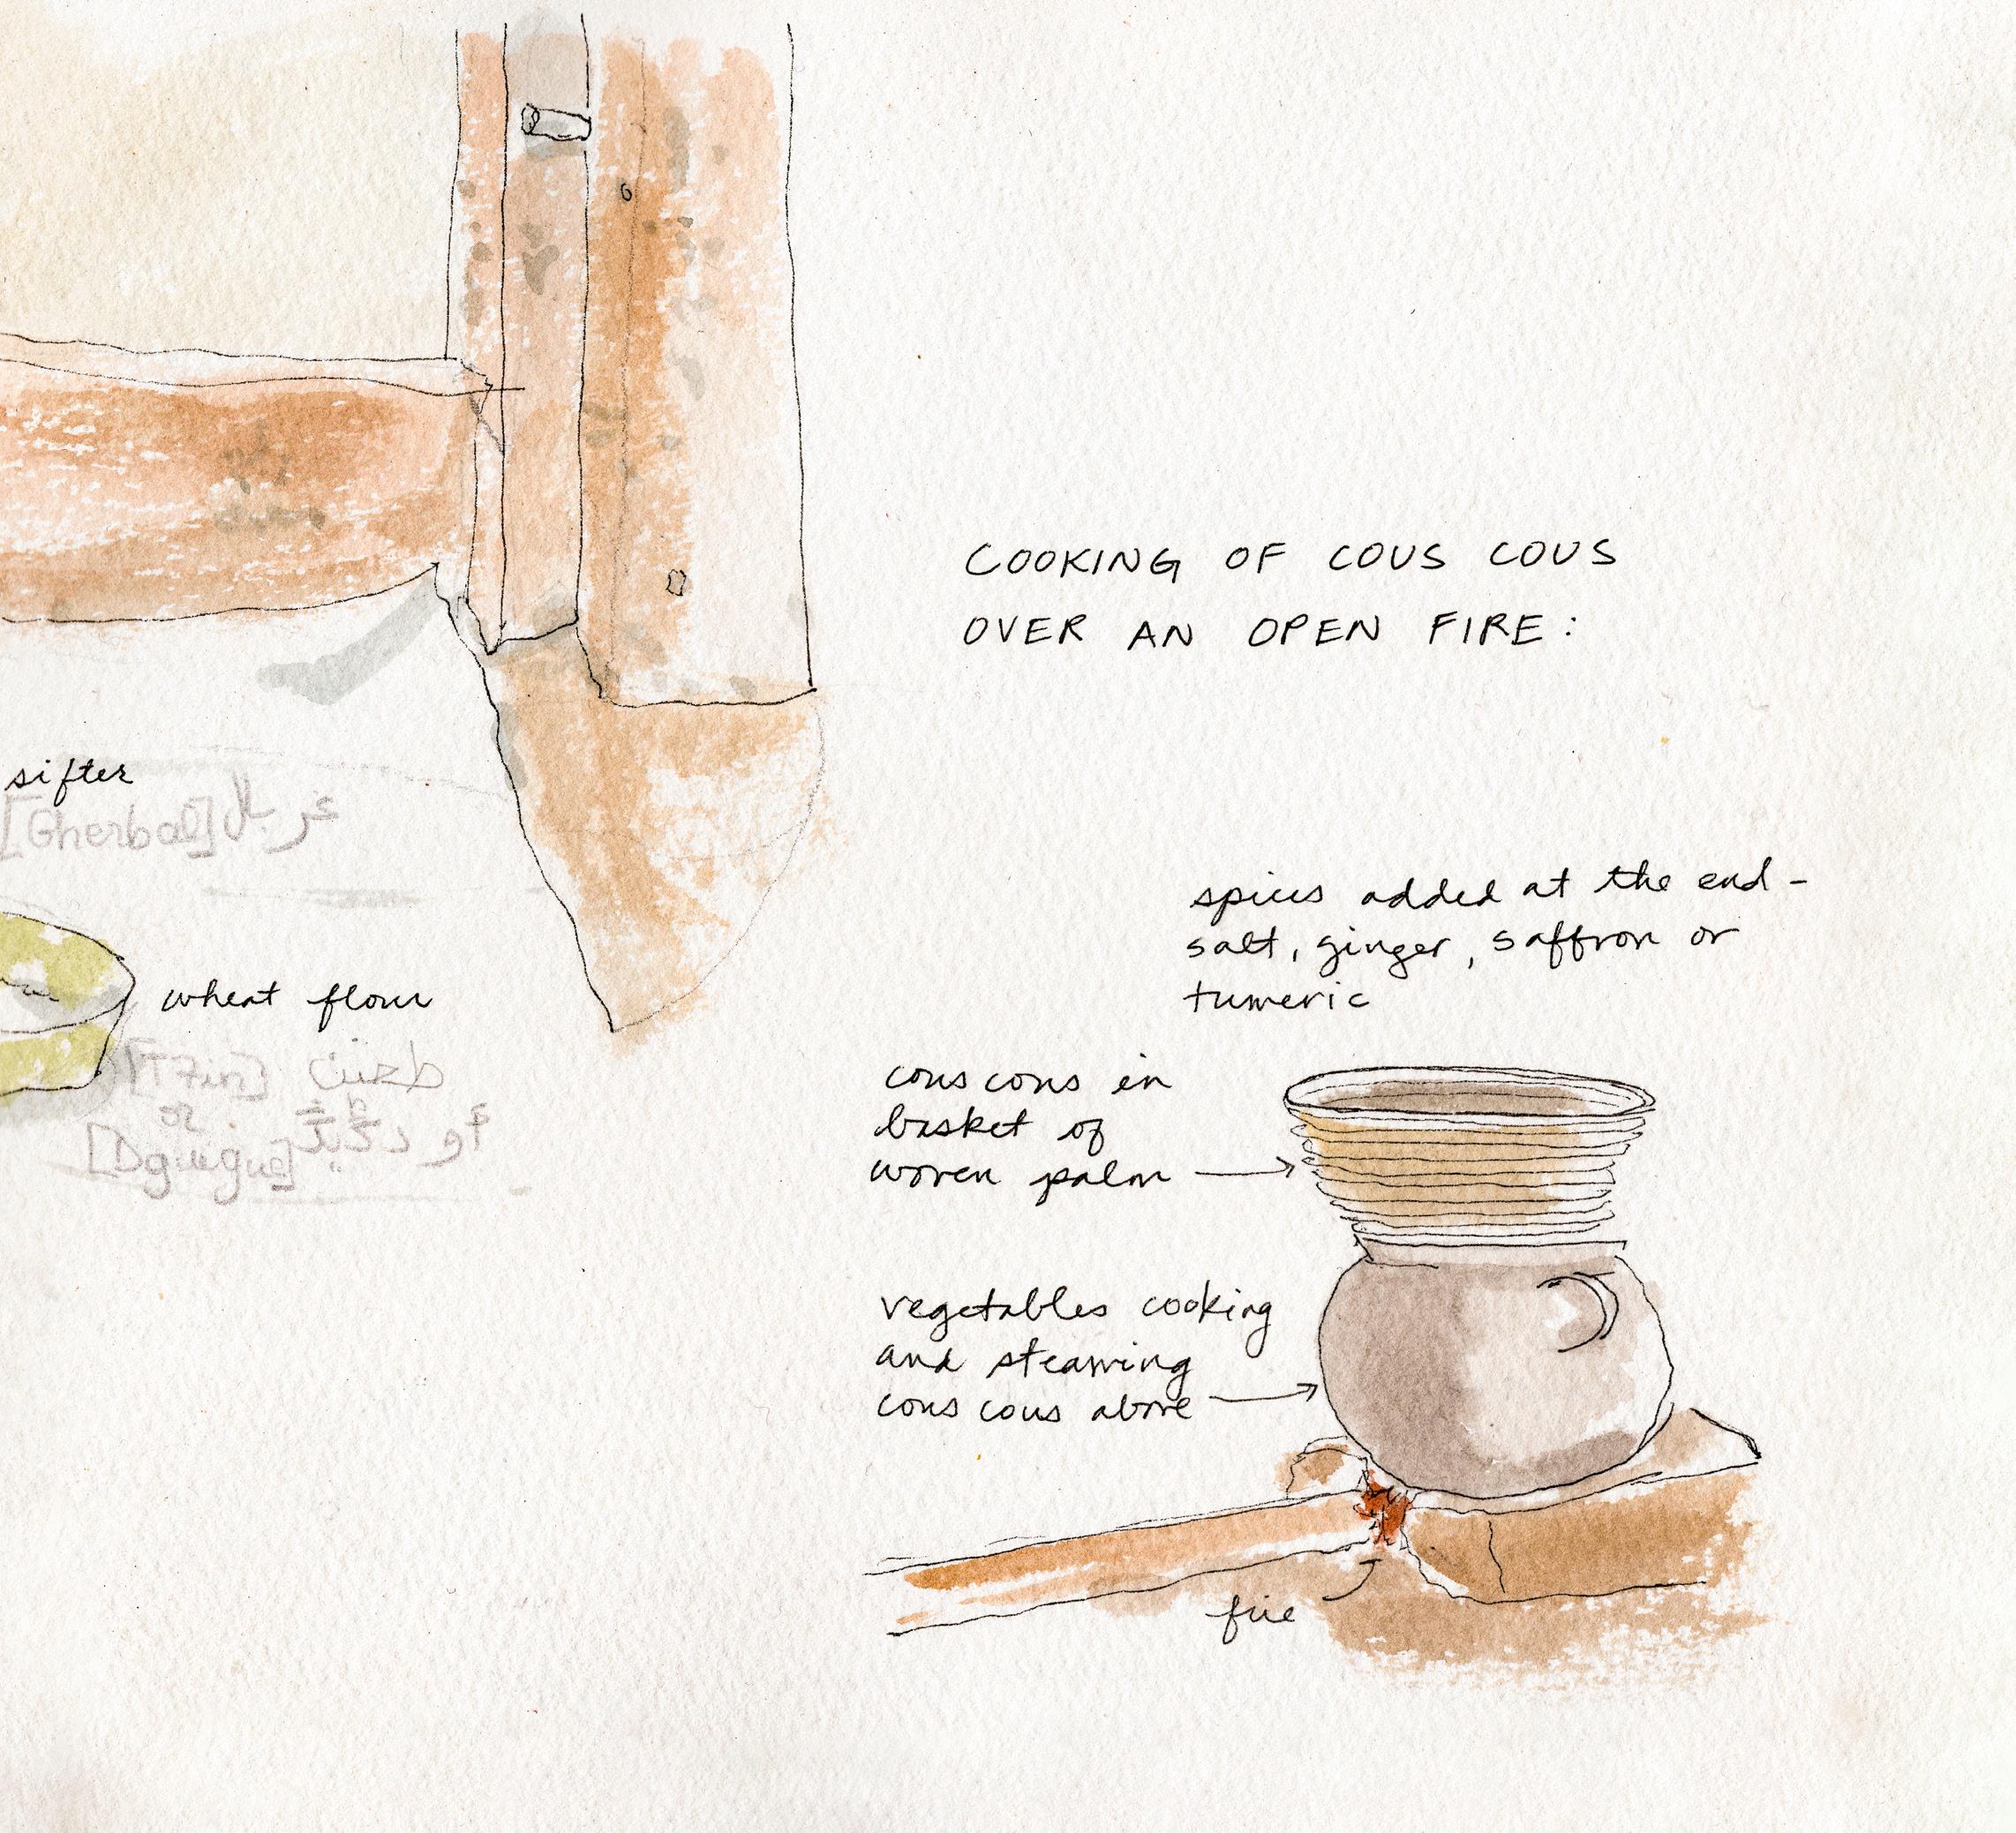 COOKING OF COUS COUS
OVER AN OPEN FIRE:
sifter
[Gherbal] غربال
wheat flour
[T7in] طحين
or
[Dguigue] أو دقيق
spices added at the end -
salt, ginger, saffron or
tumeric
cous cous in
basket of
woven palm
vegetables cooking
and steaming
cous cous above
fire